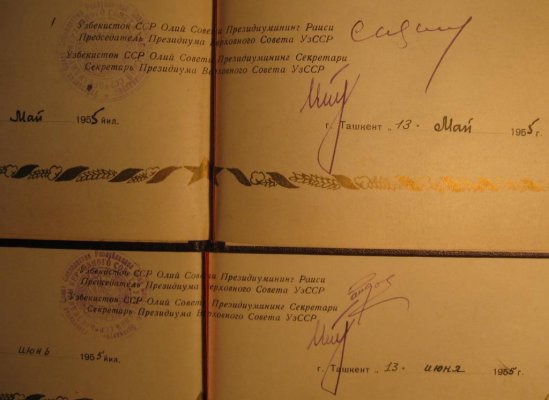 Узбекистон ССР Олий Совети Президиумининг Раиси
Председатель Президиума Верховного Совета УзССР
Узбекистон ССР Олий Совети Президиумининг Секретари
Секретарь Президиума Верховного Совета УзССР
Май 1955 йил.
г. Ташкент „ 13 · Май 1955 г.
Узбекистон ССР Олий Совети Президиумининг Раиси
Председатель Президиума Верховного Совета УзССР
Узбекистон ССР Олий Совети Президиумининг Секретари
Секретарь Президиума Верховного Совета УзССР
июнь 1955 йил.
г. Ташкент „ 13 · июня 1955 г.